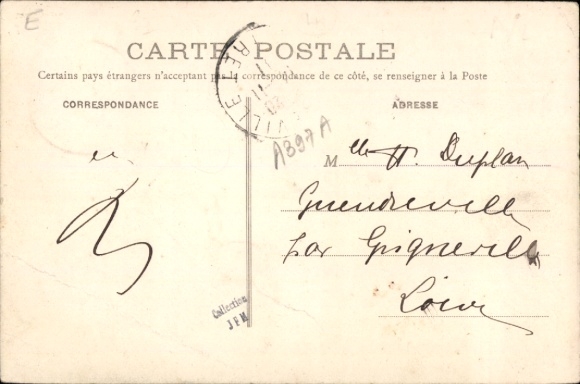 E
CARTE POSTALE
Certains pays étrangers n'acceptant pas la correspondance de ce côté, se renseigner à la Poste
CORRESPONDANCE
ADRESSE
A397A
Mlle H. Duplan
Guendreville
par Grigneville
Loiret
Collection
JFM